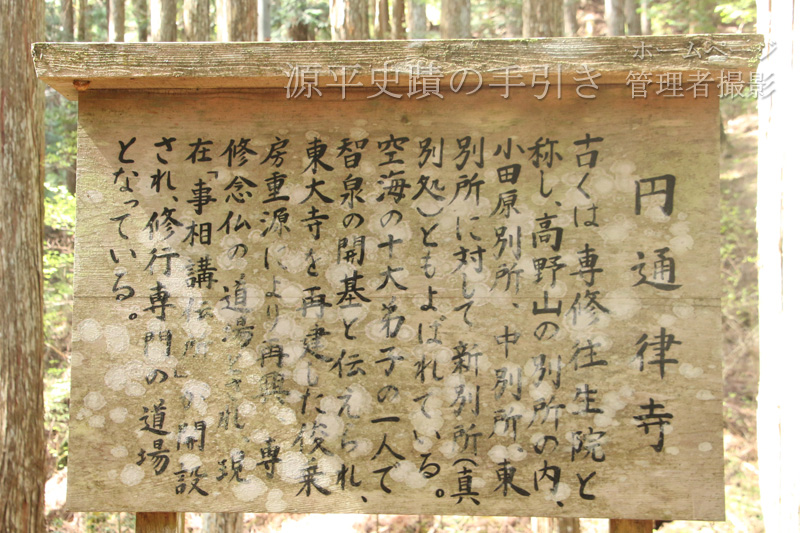 源平史蹟の手引き
ホームページ
管理者撮影
円通律寺
古くは専修往生院と
称し、高野山の別所の内、
小田原別所、中別所、東
別所に対して新別所(真
別処)ともよばれている。
空海の十大弟子の一人で
智泉の開基と伝えられ、
東大寺を再建した後乗
房重源により再興 専
修念仏の道場とされ、現
在「事相講伝所」が開設
され、修行専門の道場
となっている。